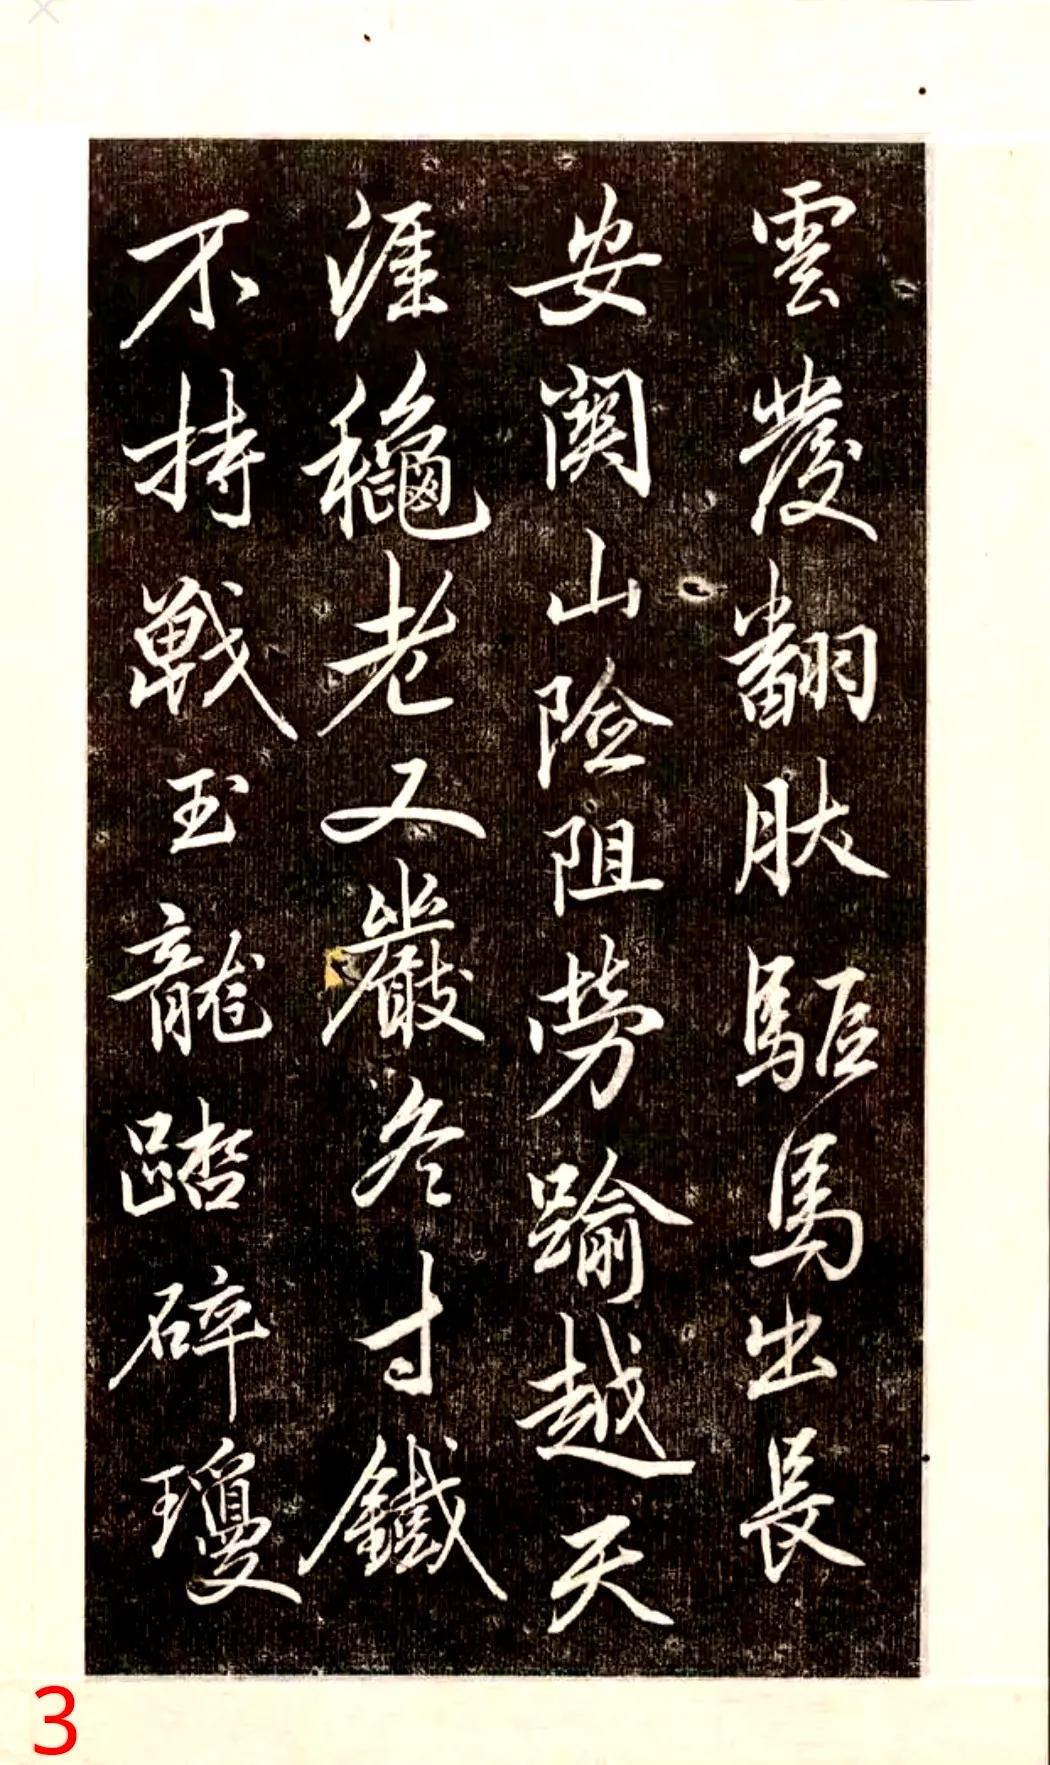 雲發翻肷驅馬出長
安関山險阻勞踰越天
涯穐老又嚴冬寸鐵
不持戰玉龍踏碎瓊
3